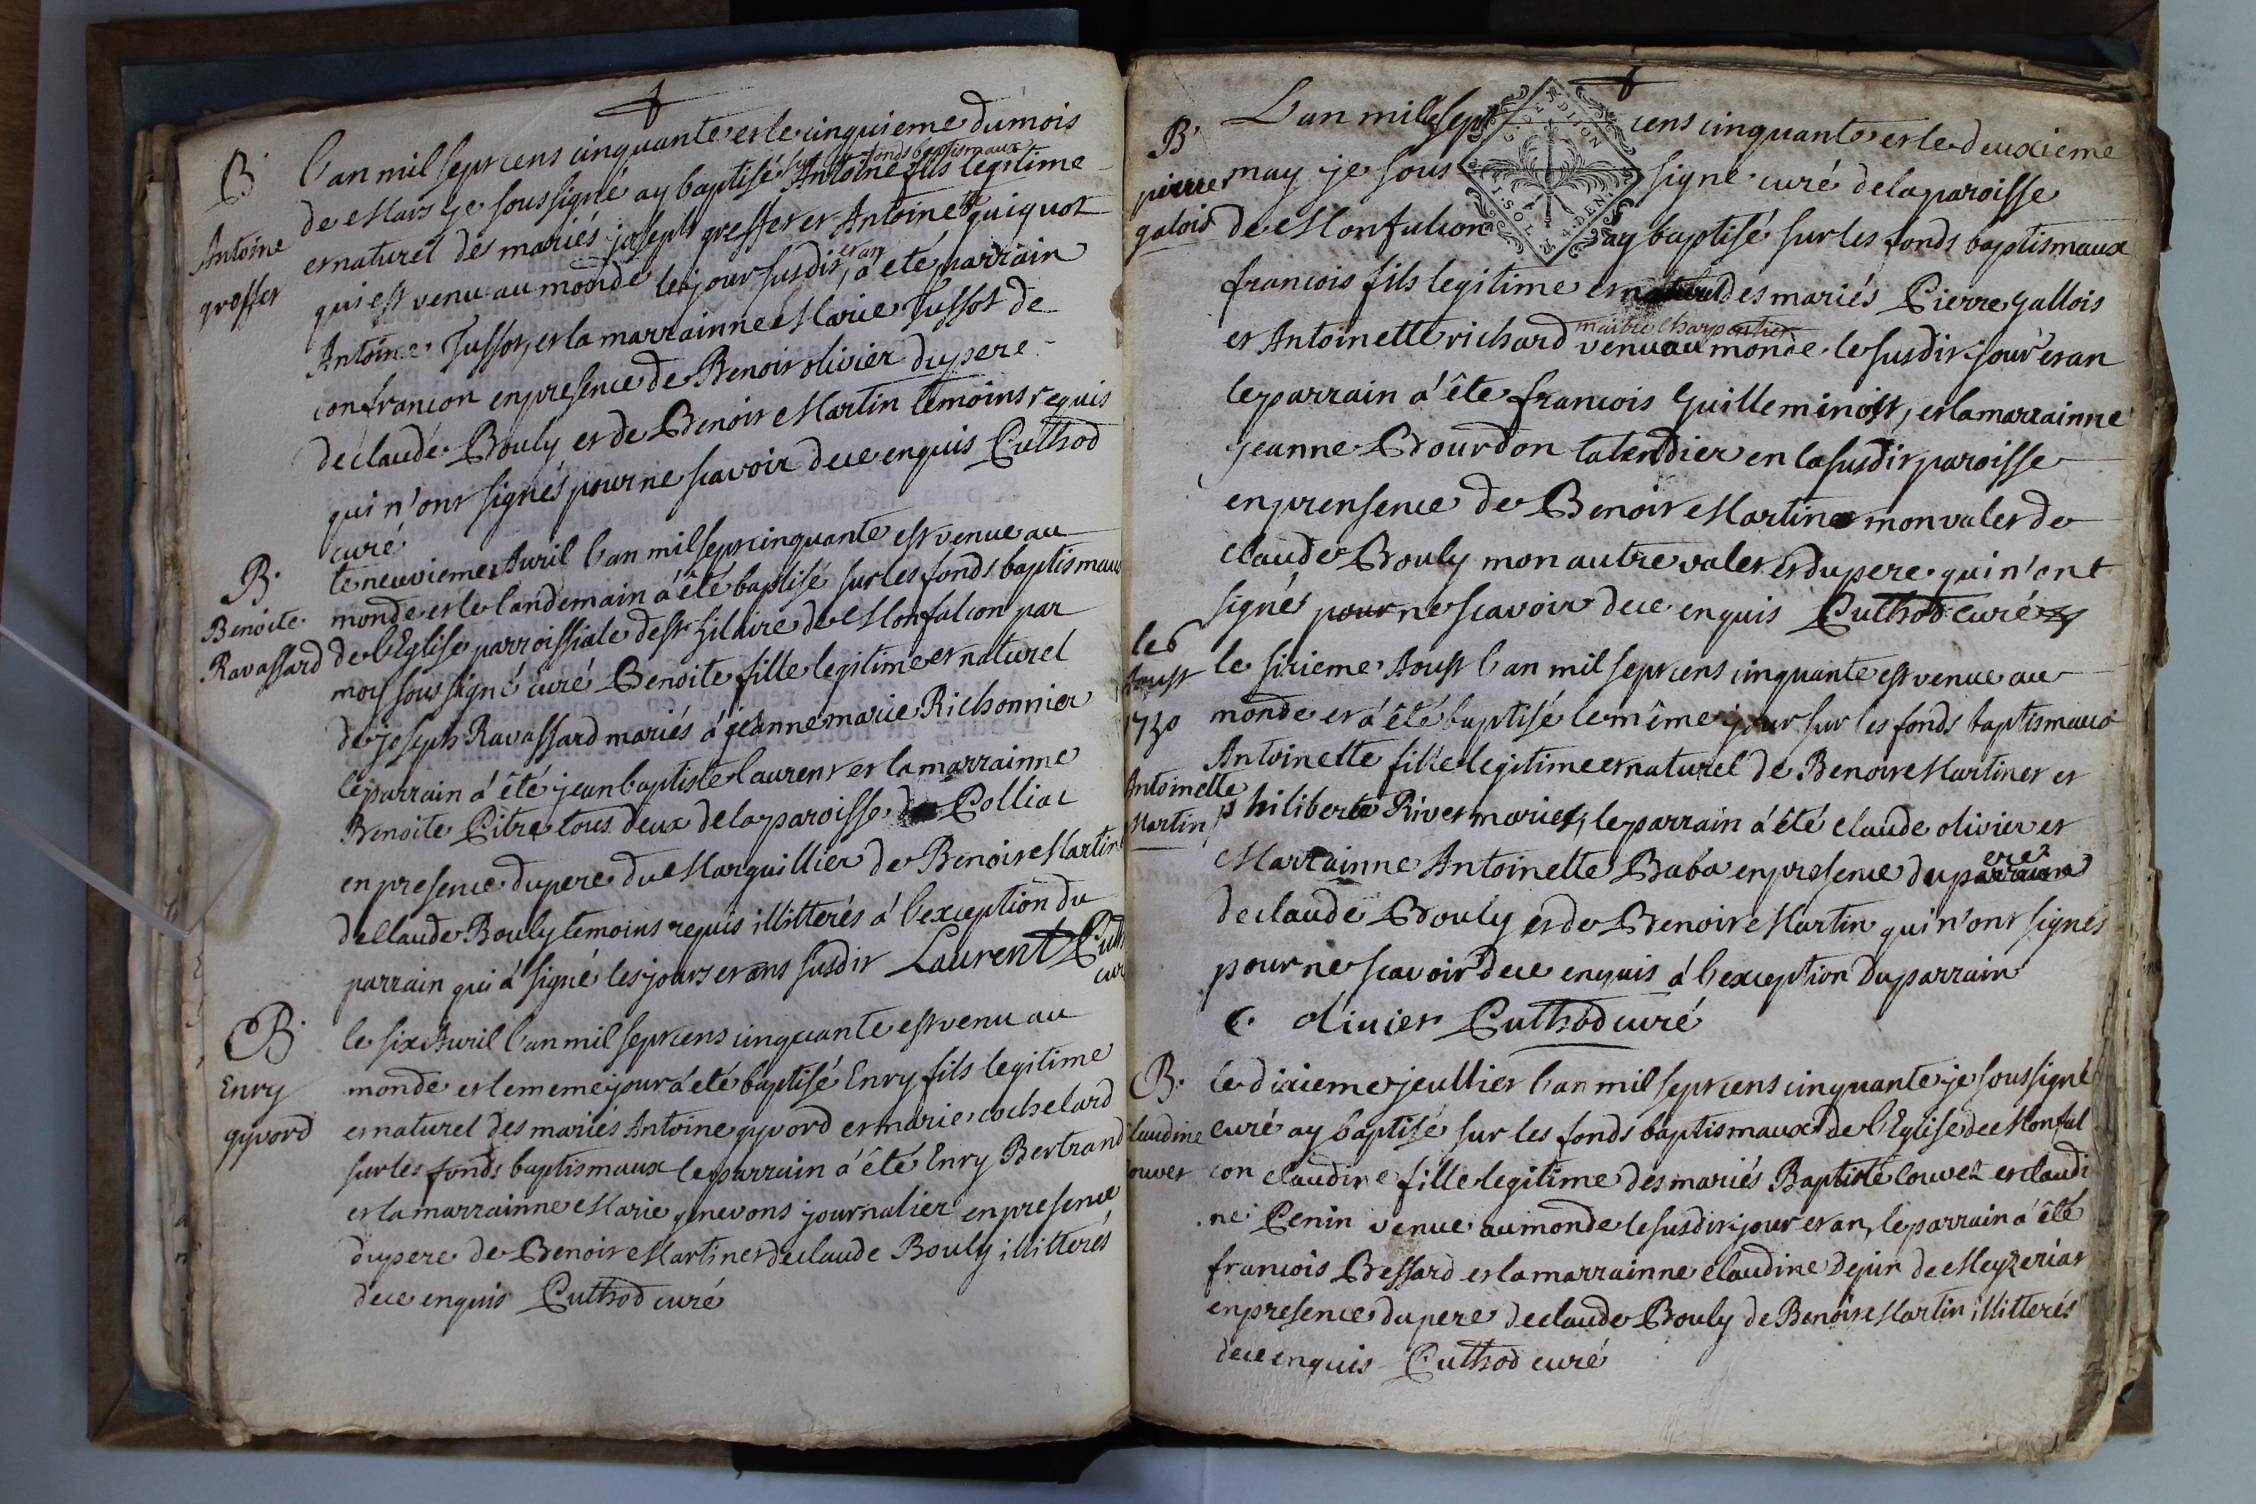 B.
Antoine
greffet
l'an mil sept cens cinquante et le cinquieme du mois
de Mars je soussigné ay baptisé sur les fonds baptismaux Antoine fils legitime
et naturel des mariés joseph greffet et Antoinette quiquot
qui est venu au monde les jour susdit et an, a été parrain
Antoine Tussot, et la marrainne Marie Tussot de
confrancon en presence de Benoit olivier du pere
de claude Bouly et de Benoit Martin temoins requis
qui n'ont signés pour ne scavoir de ce enquis Cuthod
curé
B.
Benoite
Ravassard
le neuvieme Avril l'an mil sept cinquante est venue au
monde et le landemain á été baptisé sur les fonds baptismaux
de l'Eglise parroissiale de st hilaire de Monfalcon par
moy sous signé curé Benoite fille legitime et naturel
de joseph Ravassard mariés á jeanne marie Richonnier
le parrain á été jean baptiste laurent et la marrainne
Benoite Pitre tous deux de la paroisse de Polliac
en presence du pere du Marguillier de Benoit Martin
de Claude Bouly temoins requis illitterés á l'exception du
parrain qui á signé les jours et ans susdit Laurent Cuth
curé
B.
Enry
gyvord
le six Avril l'an mil sept cens cinquante est venu au
monde et le meme jour á été baptisé Enry fils legitime
et naturel des mariés Antoine gyvord et marie cochelard
sur les fonds baptismaux le parrain á été Enry Bertrand
et la marrainne Marie genevons journalier en presence
du pere de Benoit Martin et de claude Bouly illitterés
de ce enquis Cuthod curé
G. DE DIJON
1. SOL 4. DEN.
B.
pierre
galois
L'an mille sept cens cinquante et le deuxieme
may je sous signé curé de la paroisse
de Monfalcon ay baptisé sur les fonds baptismaux
francois fils legitime et naturel des mariés Pierre gallois
maitre charpentier
et Antoinette richard venu au monde le susdit jour et an
le parrain á été francois Guilleminot, et la marrainne
jeanne Bourdon talendier en la susdit paroisse
en prensence de Benoit Martin mon valet de
claude Bouly mon autre valet et du pere qui n'ont
signés pour ne scavoir de ce enquis Cuthod curé
le 6
Aoust
1750
Antoinette
Martin
le sixieme Aoust l'an mil sept cens cinquante est venue au
monde et á été baptisé le même jour sur les fonds baptismaux
Antoinette fille legitime et naturel de Benoit Martin et
philiberte Rivet mariés, le parrain á été claude olivier et
Marrainne Antoinette Baba en presence du pere
de claude Bouly et de Benoit Martin qui n'ont signés
pour ne scavoir de ce enquis á l'exception du parrain
C. olivier Cuthod curé
B.
claudine
couvet
le dixieme jeullier l'an mil sept cens cinquante je soussigné
curé ay baptisé sur les fonds baptismaux de l'Eglise de Monfal
con claudine fille legitime des mariés Baptiste couvet et claudi
ne Penin venue au monde le susdit jour et an, le parrain á été
francois Bessard et la marrainne claudine Dejur de Meyzeriat
en presence du pere de claude Bouly de Benoit Martin illitterés
de ce enquis Cuthod curé